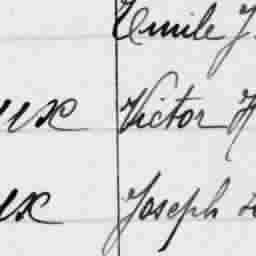 Emile J
ux Victor H
ux Joseph